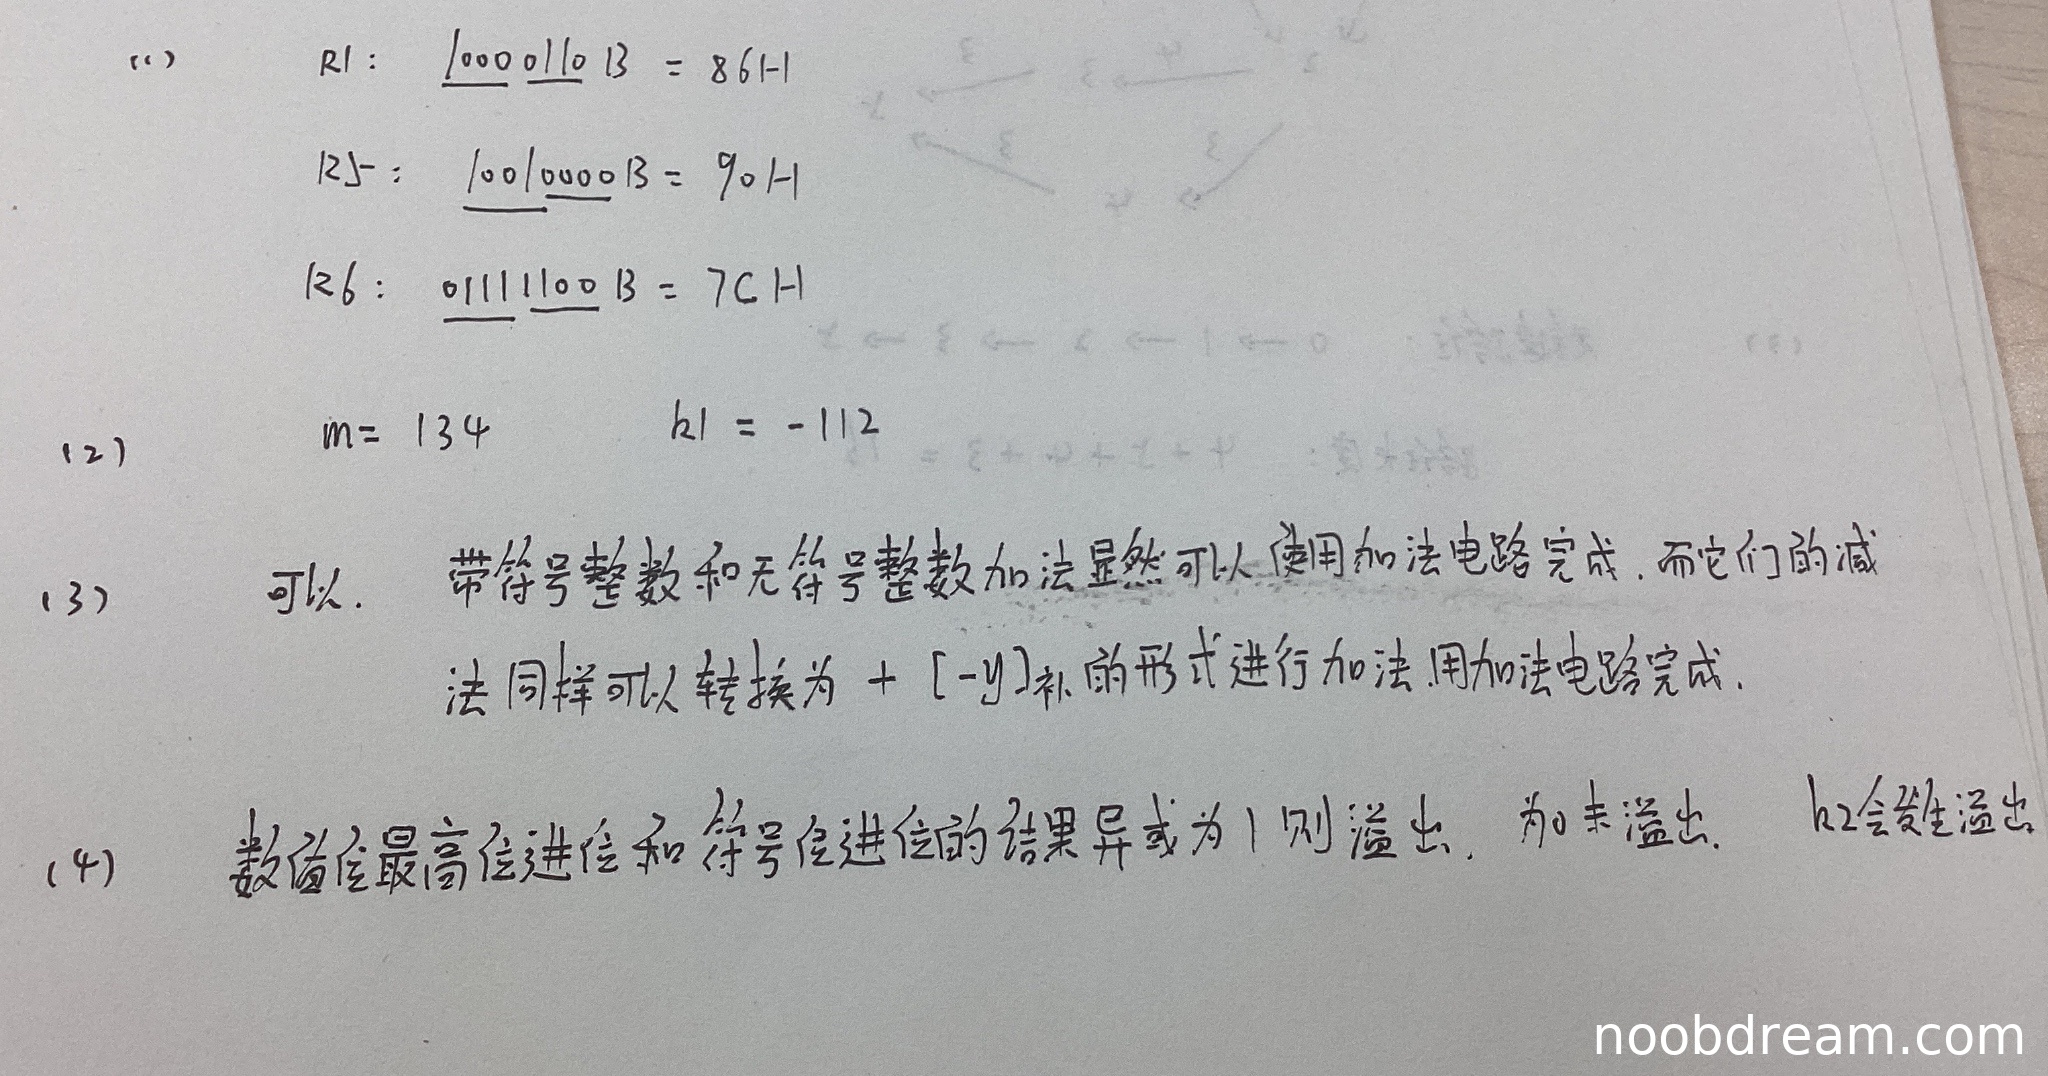 (1) R1: 10000110B = 86H
R5: 10010000B = 90H
R6: 01111100B = 7CH
(2) m= 134 k1 = -112
(3) 可以. 带符号整数和无符号整数加法显然可以使用加法电路完成.而它们的减
法同样可以转换为 + [-y]补的形式进行加法.用加法电路完成.
(4) 数值位最高位进位和符号位进位的结果异或为1则溢出. 为0未溢出. k2会发生溢出
noobdream.com